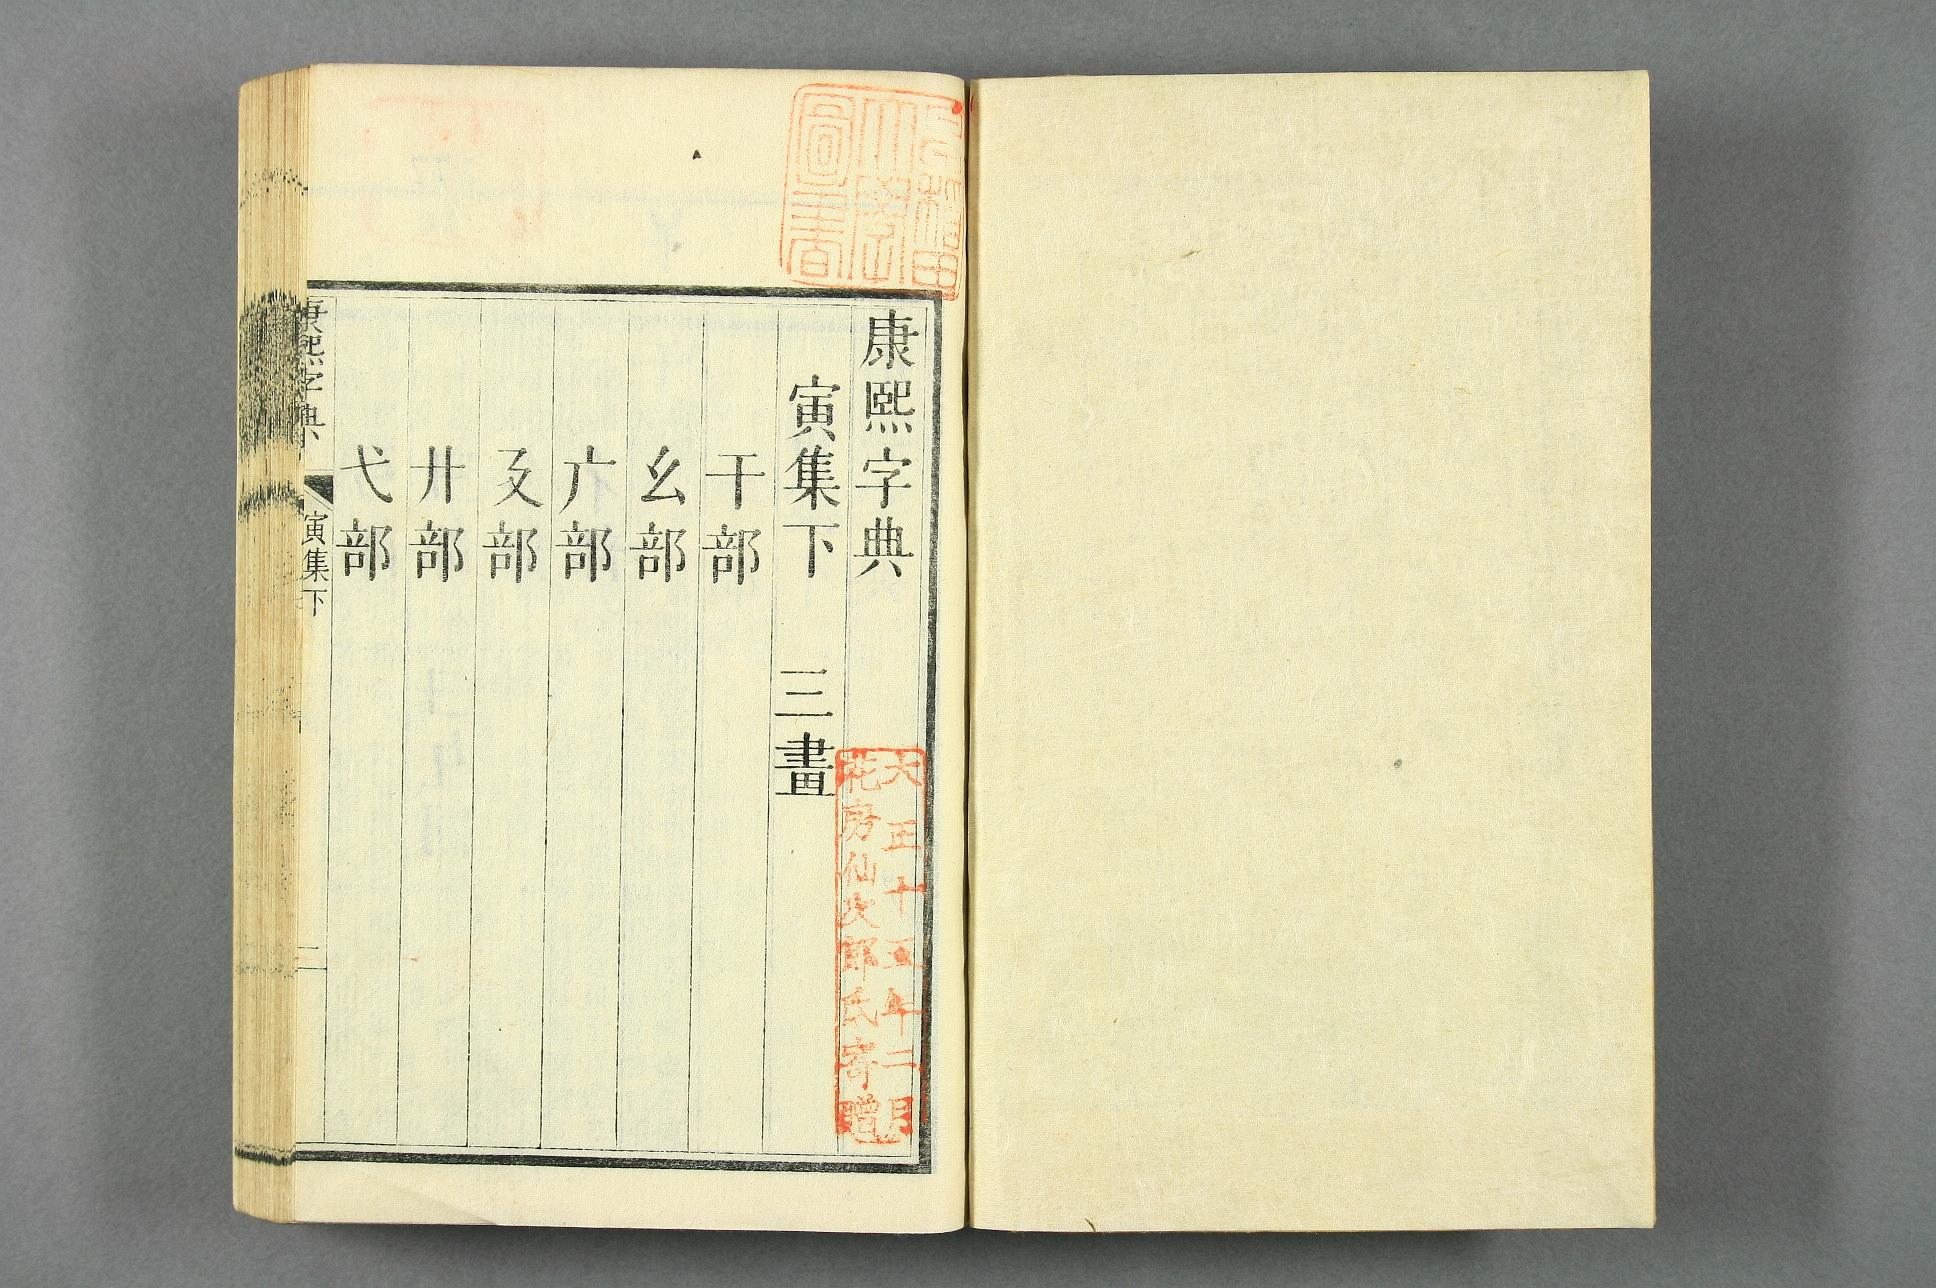 康熙字典
寅集下 三畫
干部
幺部
广部
廴部
廾部
弋部
康熙字典
寅集下
一
早稻田
大學
圖書
大正十五年二月
花房仙次郎氏寄贈